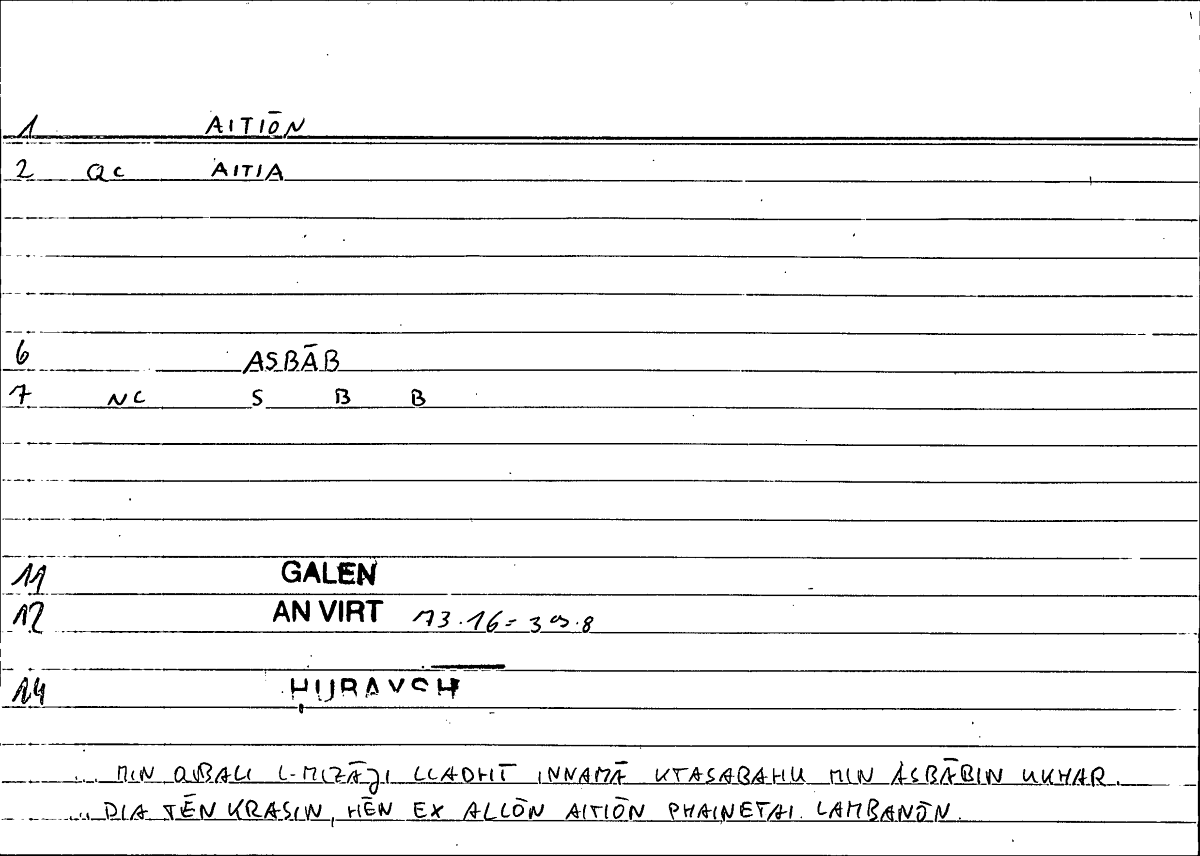 1 AITIŌN
2 QC AITIA
6 ASBĀB
7 NC S B B
11 GALEN
12 AN VIRT 73.16=39.8
14 ḤUBAYSH
... MIN QIBALI L-MIZĀJI LLADHĪ INNAMĀ KTASABAHU MIN ASBĀBIN UKHAR.
... DIA TĒN KRASIN, HĒN EX ALLŌN AITIŌN PHAINETAI LAMBANŌN.